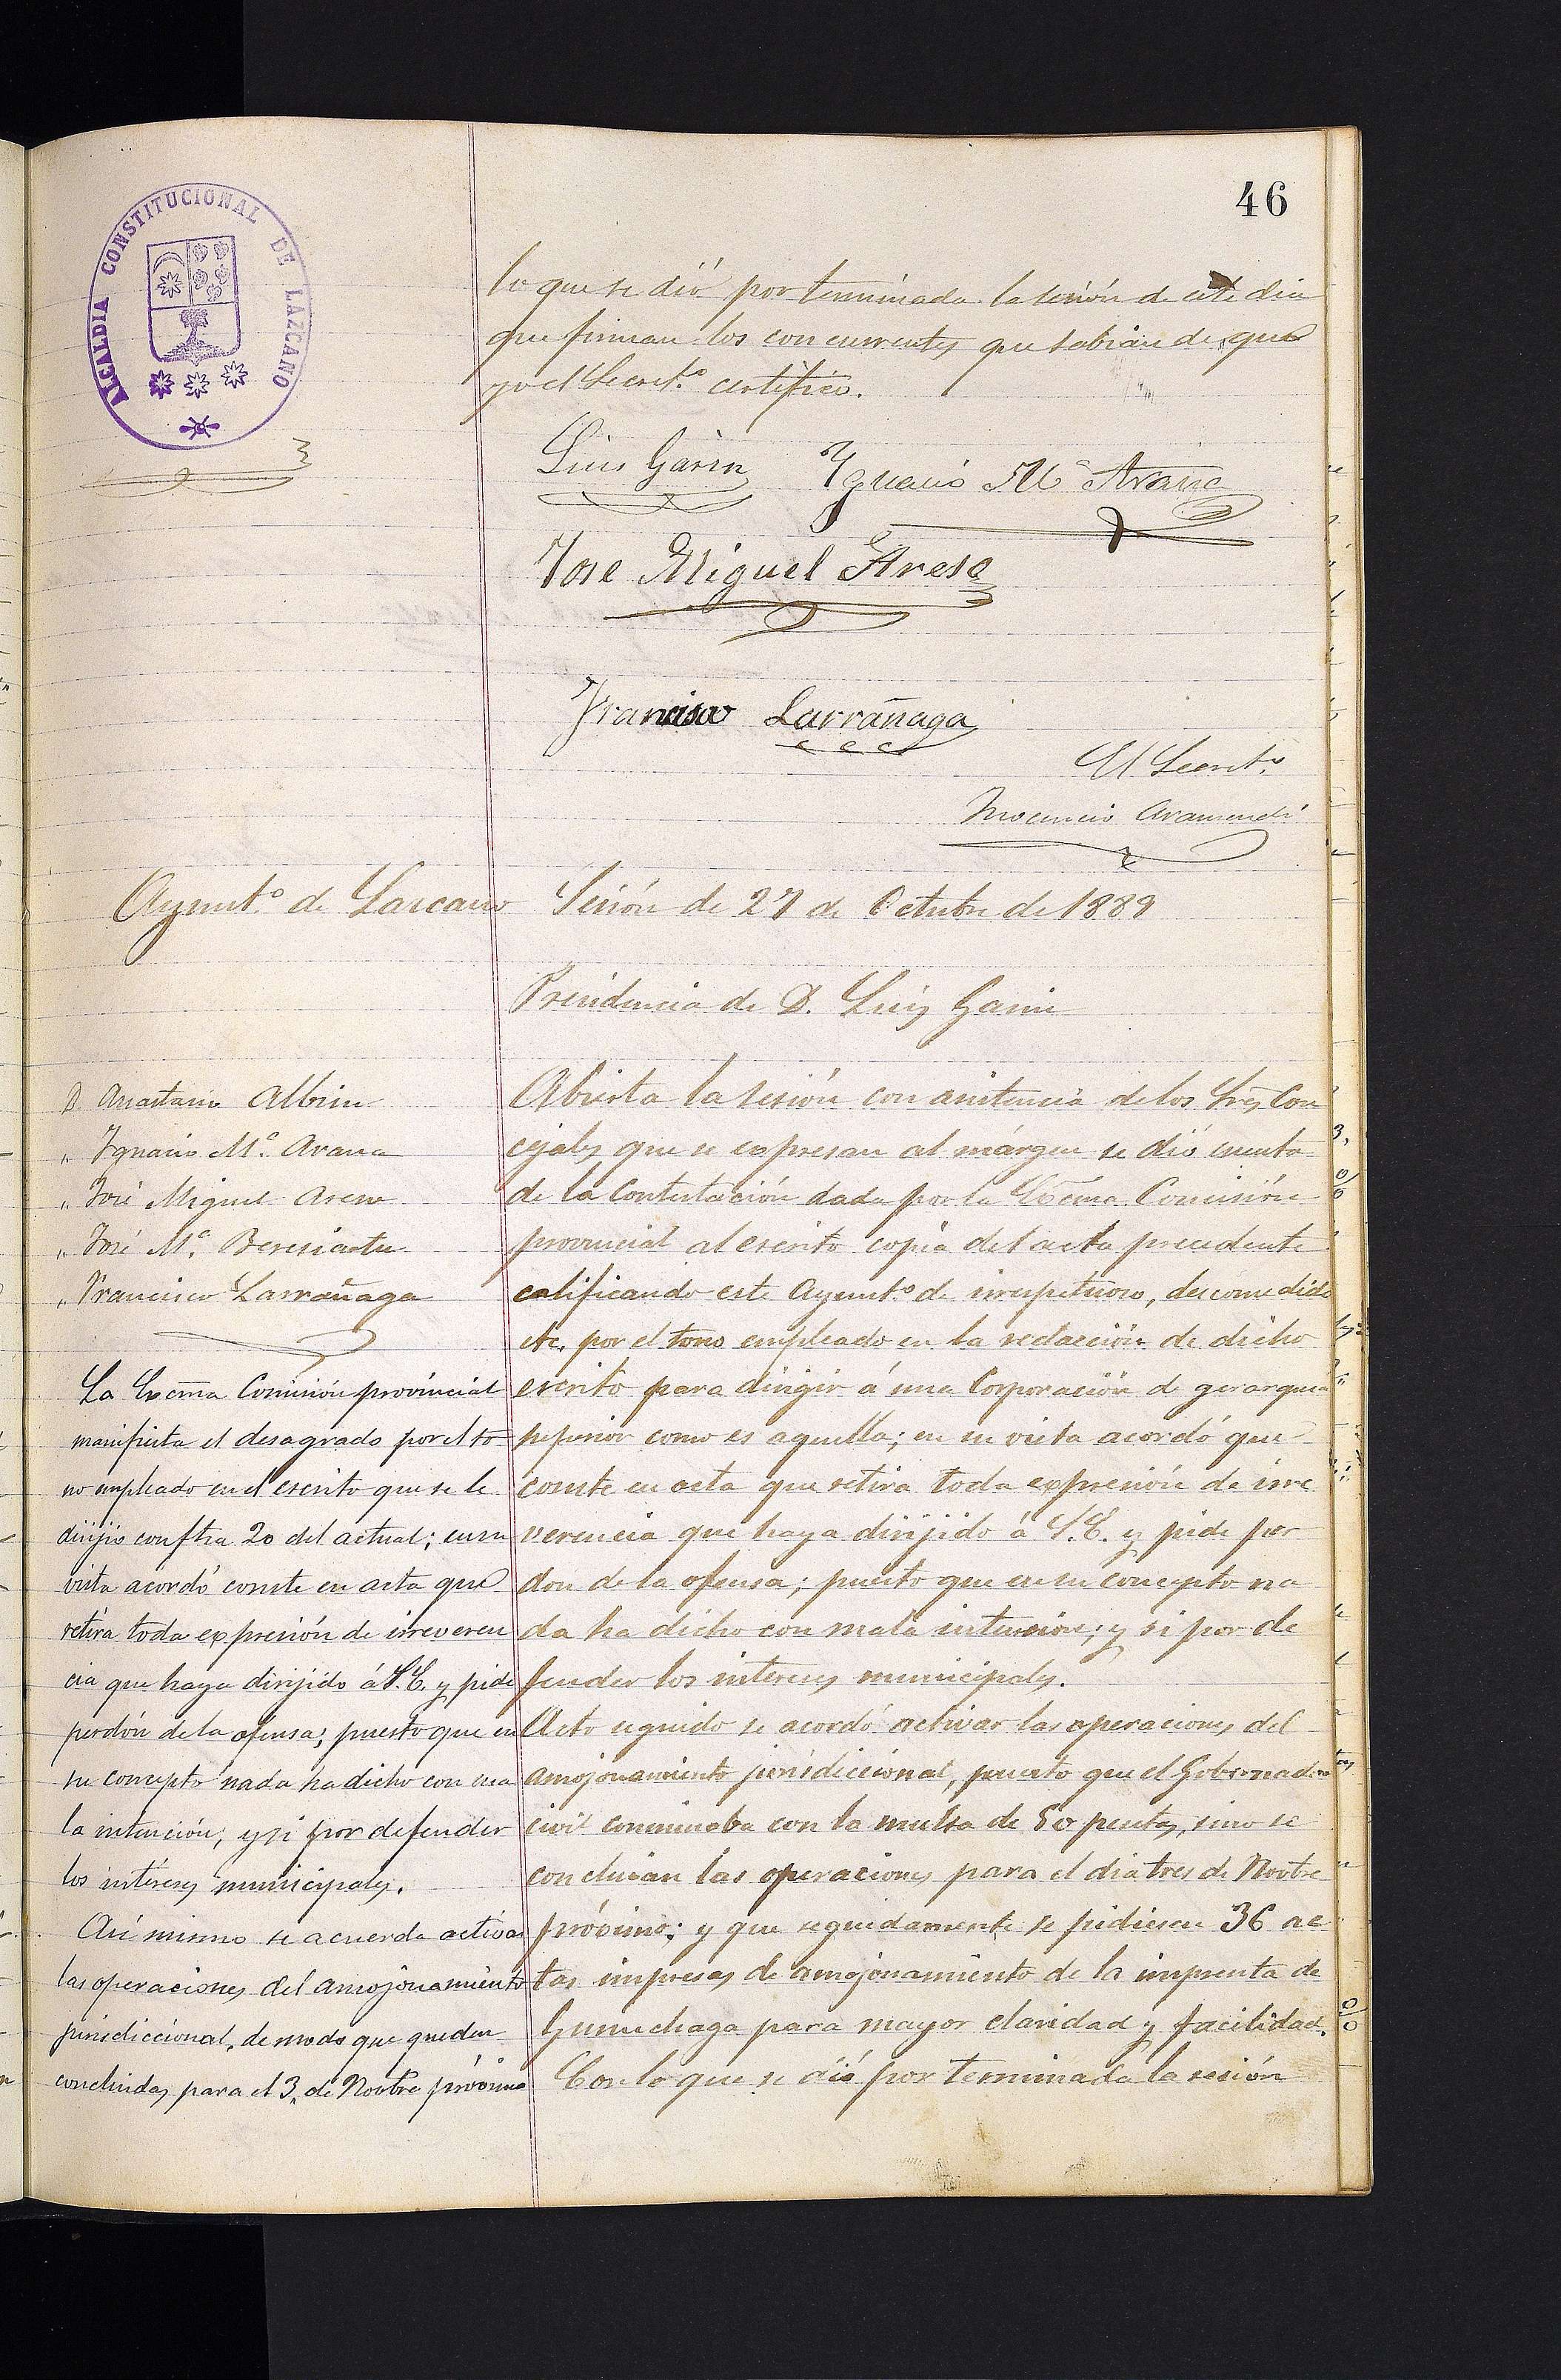 46
ALCALDIA CONSTITUCIONAL DE LAZCANO
lo que se dió por terminada la sesión de este dia
que firman los concurrentes que sabian de que
yo el Secret.º certifico.
Luis Garin
Ygnacio Mª Arana
Jose Miguel Arese
Francisco Larrañaga
El Secret.º
Inocencio Aramendi
Ayunt.º de Lazcano
Sesión de 27 de Octubre de 1889
Presidencia de D. Luis Garin
D Anastasio Albisu
" Ygnacio Mª. Arana
" José Miguel Arese
" José Mª. Beresiartu
" Francisco Larrañaga
La Excma Comisión provincial
manifiesta el desagrado por el to
no empleado en el escrito que se le
dirijio con fha 20 del actual; en su
vista acordó conste en acta que
retira toda expresión de irreveren
cia que haya dirijido á S.E. y pide
perdón de la ofensa; puesto que en
su concepto nada ha dicho con ma
la intención, y si por defender
los intereses municipales.
Asi mismo se acuerda activar
las operaciones del amojonamiento
jurisdiccional, de modo que queden
concluidas para el 3 de Novbre próximo
Abierta la sesión con asistencia de los Sres Con
cejales que se expresan al márgen se dió cuenta
de la Contestación dada por la Excma Comisión
provincial al escrito copia del acta precedente
calificando este Ayunt.º de irrespetuoso, descomedido
etc. por el tono empleado en la redacción de dicho
escrito para dirigir á una Corporación de gerarquia
superior como es aquella; en su vista acordó que
conste en acta que retira toda expresión de irre
verencia que haya dirijido á S.E. y pide per
don de la ofensa; puesto que en su concepto na
da ha dicho con mala intención; y si por de
fender los intereses municipales.
Acto seguido se acordó activar las operaciones del
amojonamiento jurisdiccional, puesto que el Gobernador
civil conminaba con la multa de 50 pesetas, sino se
concluian las operaciones para el dia tres de Novbre
próximo; y que seguidamente se pidiesen 36 ac
tas impresas de amojonamiento de la imprenta de
Gurruchaga para mayor claridad y facilidad.
Con lo que se dió por terminada la sesión